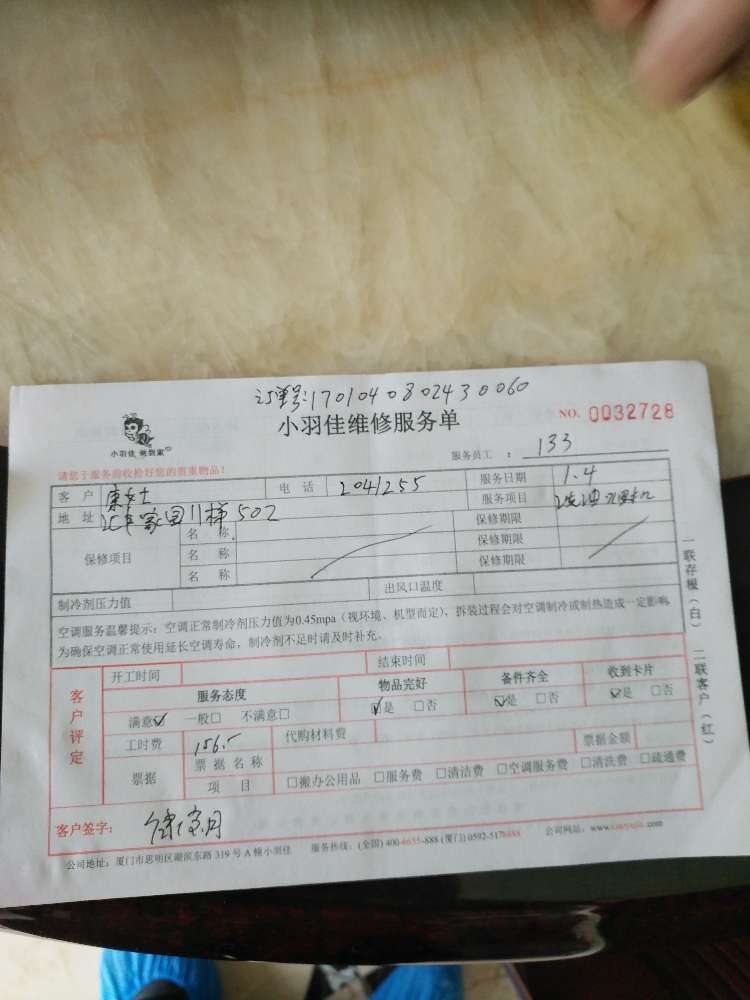 订单号:170104080243 0060
小羽佳维修服务单
NO. 0032728
小羽佳 到家
服务员工 : 133
请您于服务前收拾好您的贵重物品!
客 户 康女士 电 话 2041255 服务日期 1.4
地 址 家园11梯502 服务项目
保修项目 名 称 保修期限
名 称 保修期限
名 称 保修期限
制冷剂压力值 出风口温度
空调服务温馨提示:空调正常制冷剂压力值为0.45mpa(视环境、机型而定),拆装过程会对空调制冷或制热造成一定影响,
为确保空调正常使用延长空调寿命,制冷剂不足时请及时补充。
一联存根(白) 二联客户(红)
客户评定
开工时间 结束时间
服务态度 物品完好 备件齐全 收到卡片
满意☑ 一般□ 不满意□ ☑是 □否 ☑是 □否 ☑是 □否
工时费 156.5 代购材料费 票据金额
票据 票据名称
项 目 □搬办公用品 □服务费 □清洁费 □空调服务费 □清洗费 □疏通费
客户签字:
公司地址:厦门市思明区湖滨东路 319 号 A 幢小羽佳 服务热线:(全国) 400-6655-888 (厦门) 0592-5178888 公司网站:www.xiaoyujia.com